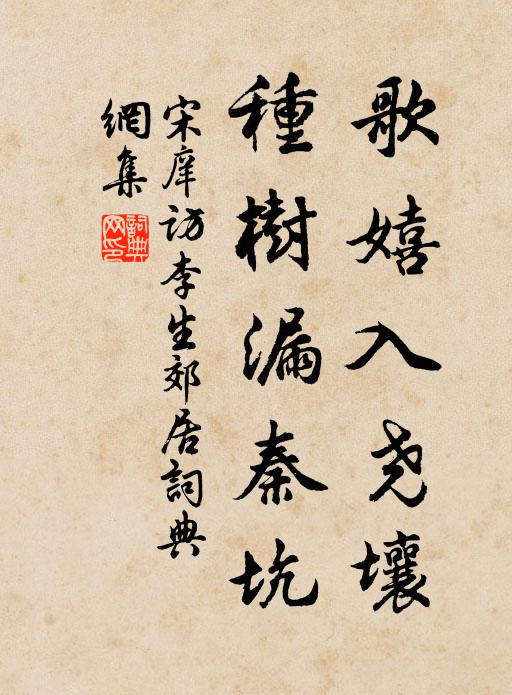 歌嬉入尧壤
種樹漏秦坑
宋庠访李生郊居詞典
網集
詞典
网印